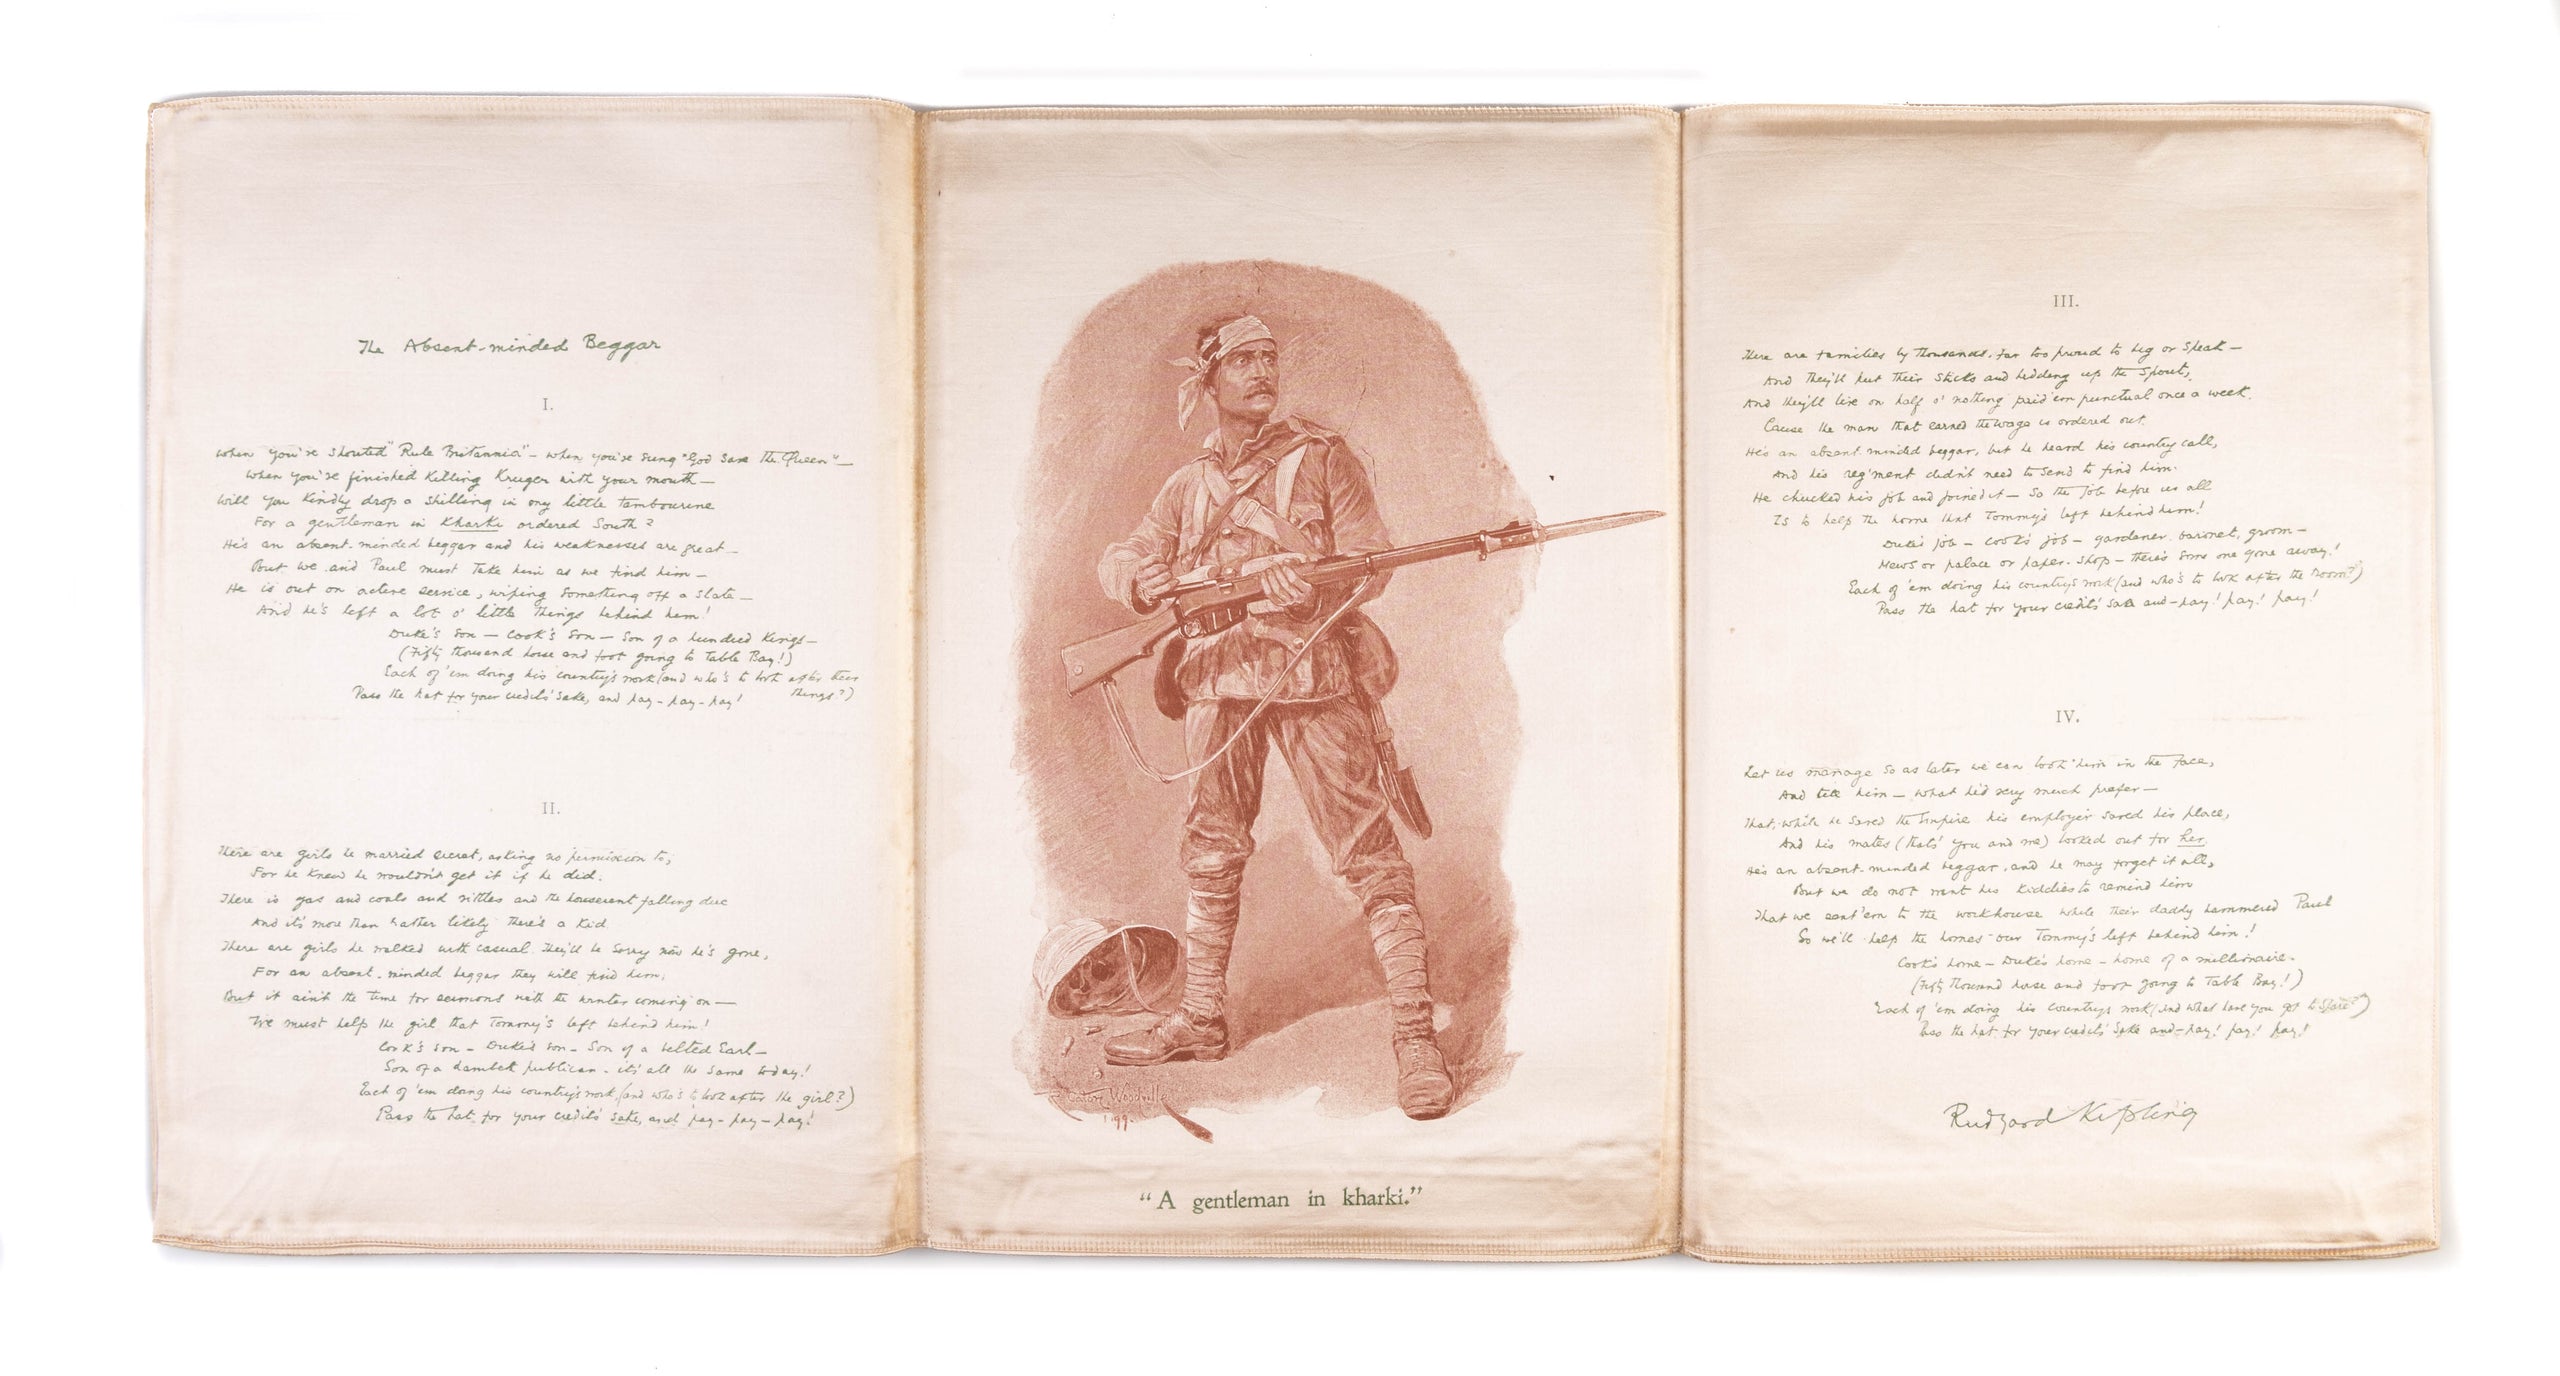 The Absent-minded Beggar
I.
When you've shouted "Rule Britannia" - when you've sung "God save the Queen" -
When you've finished killing Kruger with your mouth -
Will you kindly drop a shilling in my little tambourine
For a gentleman in Kharki ordered South?
He's an absent-minded beggar and his weaknesses are great -
But we and Paul must take him as we find him -
He is out on active service, wiping something off a slate -
And he's left a lot o' little things behind him!
Duke's son - Cook's son - son of a hundred Kings -
(Fifty thousand horse and foot going to Table Bay!)
Each of 'em doing his country's work (and who's to look after their
things?)
Pass the hat for your credit's sake, and pay - pay - pay!
II.
There are girls he married secret, asking no permission to,
For he knew he wouldn't get it if he did.
There is gas and coals and vittles and the houserent falling due
And it's more than rather likely there's a kid.
There are girls he walked with casual. They'll be sorry now he's gone,
For an absent-minded beggar they will find him,
But it ain't the time for sermons with the winter coming on -
We must help the girl that Tommy's left behind him!
Cook's son - Duke's son - Son of a belted Earl -
Son of a Lambeth publican - it's all the same today!
Each of 'em doing his country's work (and who's to look after the girl?)
Pass the hat for your credit's sake, and pay - pay - pay!
R Caton Woodville
1899.
"A gentleman in kharki."
III.
There are families by thousands, far too proud to beg or speak -
And they'll put their sticks and bedding up the spout,
And they'll live on half o' nothing paid 'em punctual once a week,
Cause the man that earned the wage is ordered out.
He's an absent-minded beggar, but he heard his country call,
And his reg'ment didn't need to send to find him.
He chucked his job and joined it - So the job before us all
Is to help the home that Tommy's left behind him!
Duke's job - Cook's job - gardener, baronet, groom -
Mews or palace or paper-shop - there's some one gone away!
Each of 'em doing his country's work (and who's to look after the room?)
Pass the hat for your credit's sake and - pay! pay! pay!
IV.
Let us manage so as later we can look him in the face,
And tell him - what he'd very much prefer -
That, while he saved the Empire his employer saved his place,
And his mates (that's you and me) looked out for her.
He's an absent-minded beggar, and he may forget it all,
But we do not want his kiddies to remind him
That we sent 'em to the workhouse while their daddy hammered Paul
So we'll help the homes our Tommy's left behind him!
Cook's home - Duke's home - home of a millionaire -
(Fifty thousand horse and foot going to Table Bay!)
Each of 'em doing his country's work (and what have you got to spare?)
Pass the hat for your credit's sake and - pay! pay! pay!
Rudyard Kipling